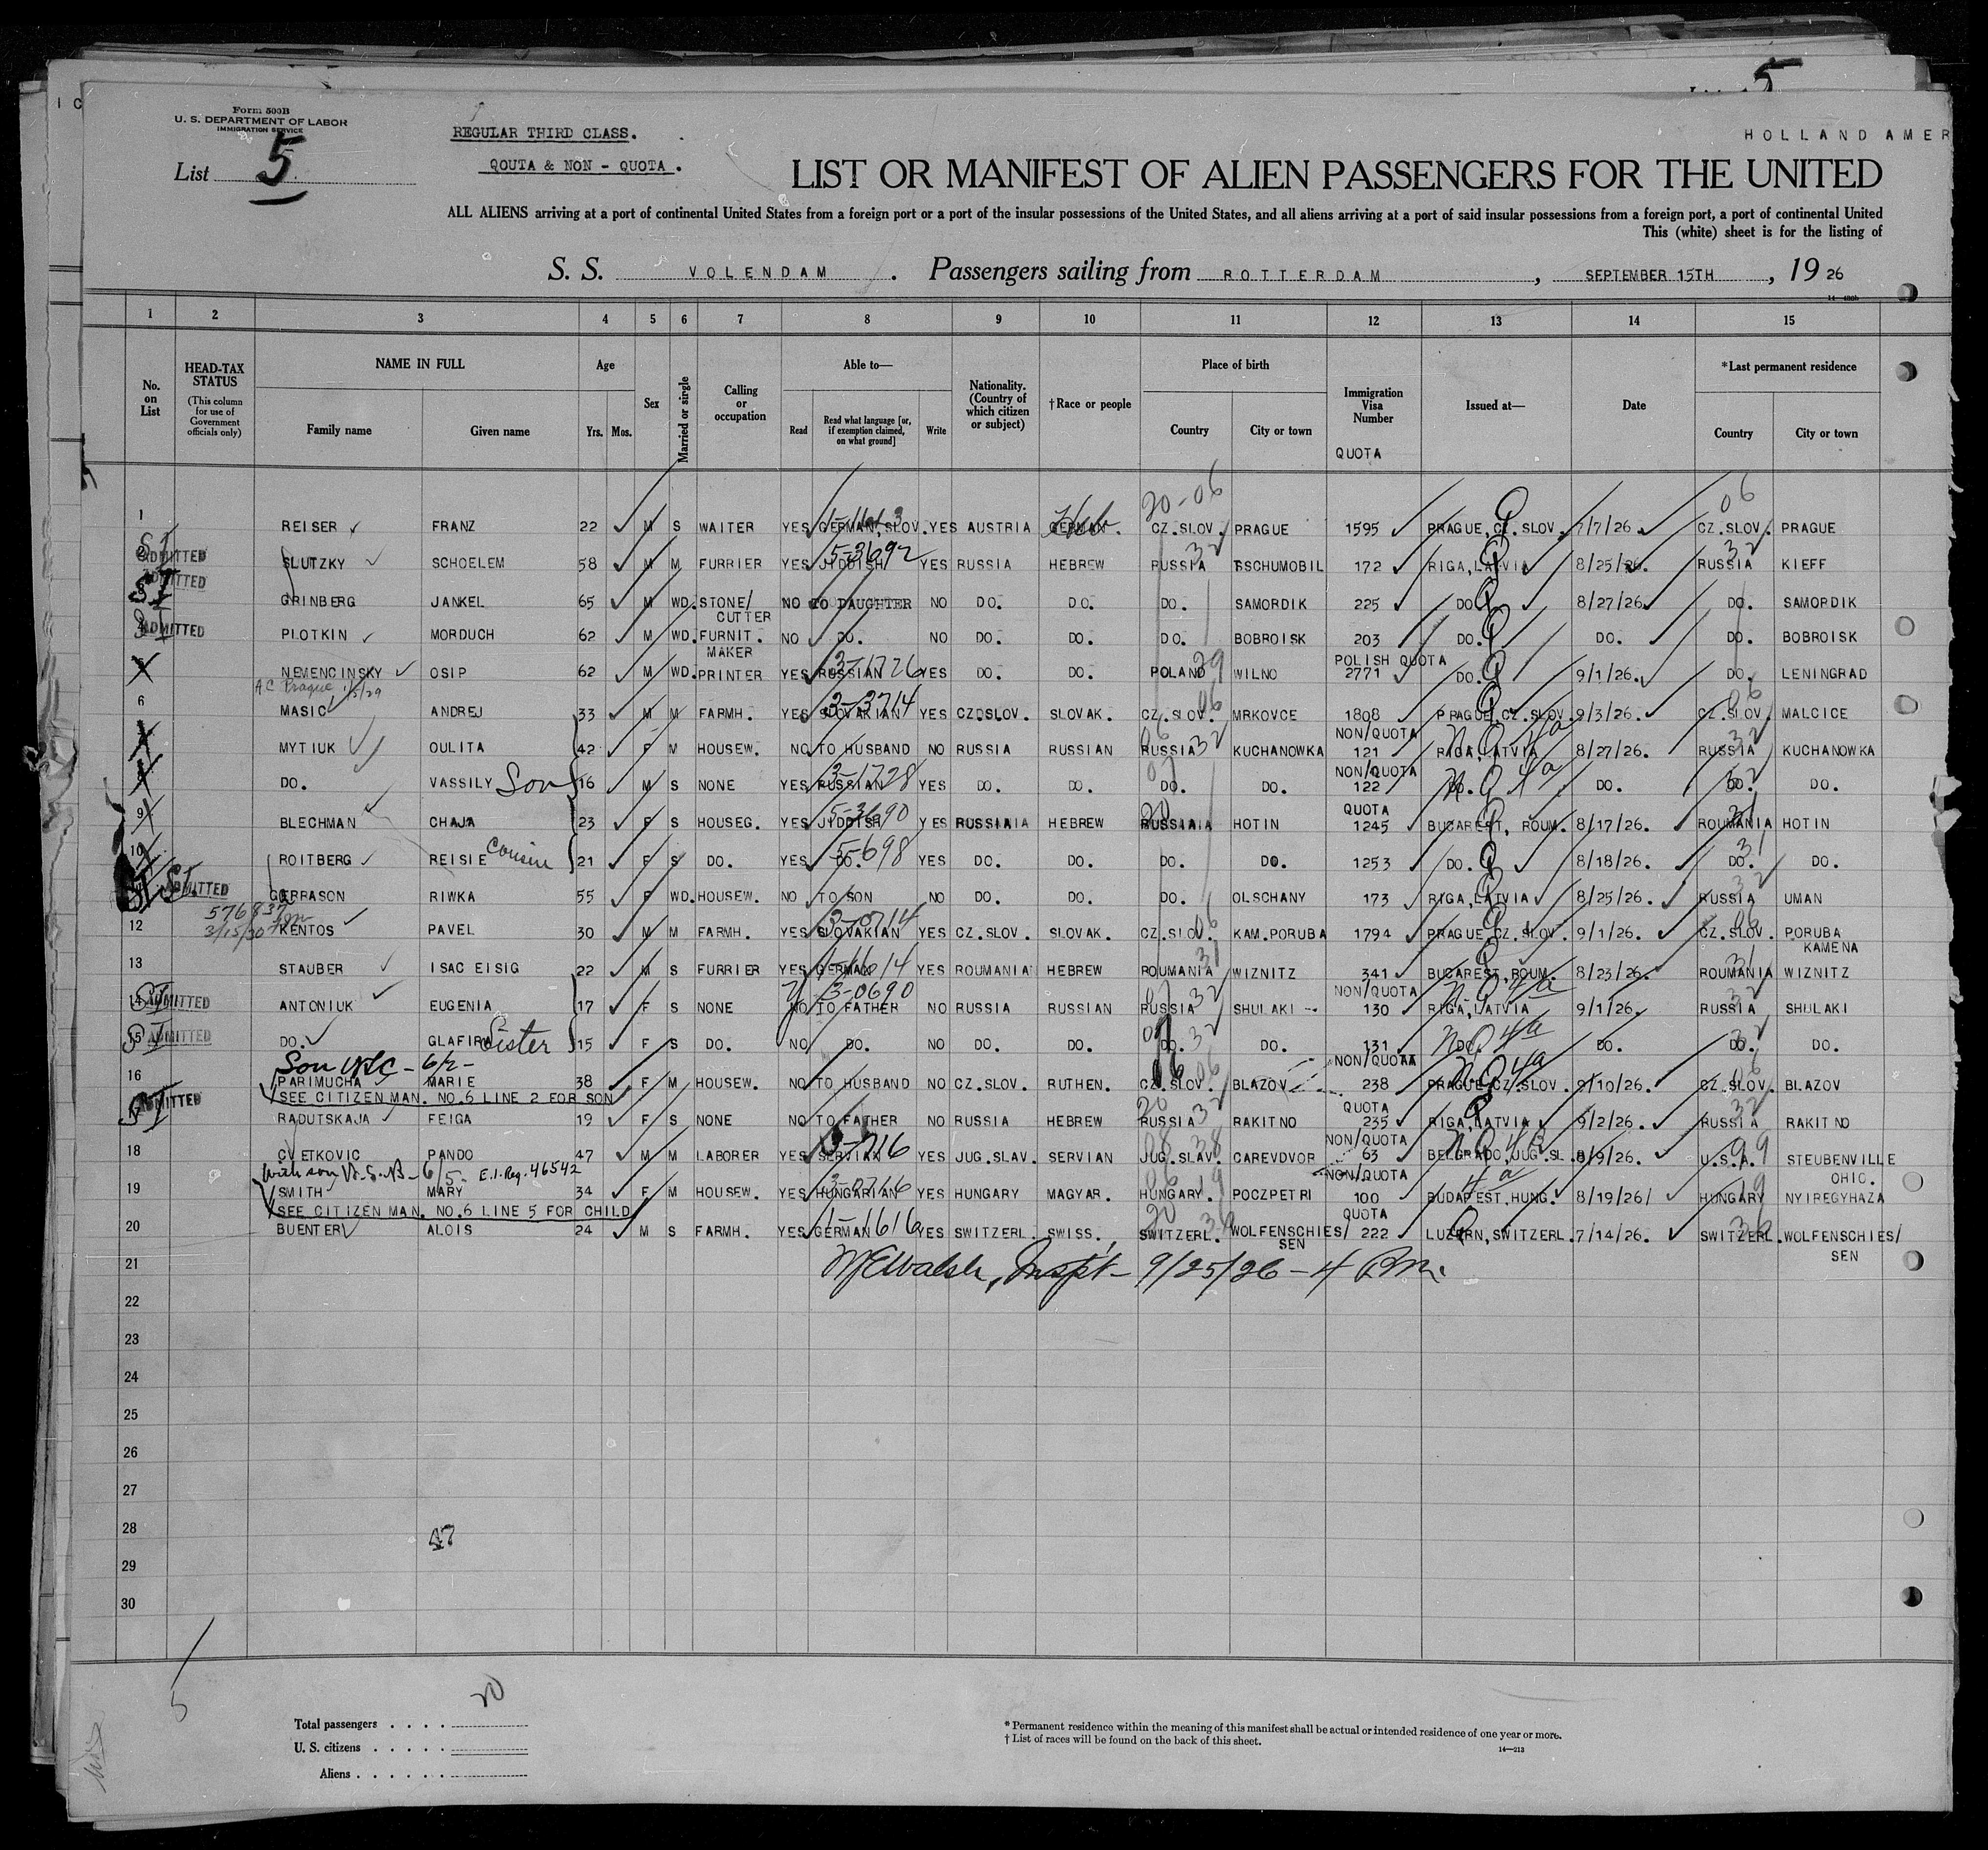 5
Form 500B
U. S. DEPARTMENT OF LABOR
IMMIGRATION SERVICE
List 5
REGULAR THIRD CLASS.
QOUTA & NON - QUOTA.
HOLLAND AMER
LIST OR MANIFEST OF ALIEN PASSENGERS FOR THE UNITED
ALL ALIENS arriving at a port of continental United States from a foreign port or a port of the insular possessions of the United States, and all aliens arriving at a port of said insular possessions from a foreign port, a port of continental United
This (white) sheet is for the listing of
S. S. VOLENDAM. Passengers sailing from ROTTERDAM, SEPTEMBER 15TH, 19 26
1 2 3 4 5 6 7 8 9 10 11 12 13 14 15
No. on List
HEAD-TAX STATUS (This column for use of Government officials only)
NAME IN FULL Family name Given name
Age Yrs. Mos.
Sex
Married or single
Calling or occupation
Able to— Read Read what language [or, if exemption claimed, on what ground] Write
Nationality. (Country of which citizen or subject)
†Race or people
Place of birth Country City or town
Immigration Visa Number
QUOTA
Issued at—
Date
*Last permanent residence Country City or town
1 REISER FRANZ 22 M S WAITER YES GERMAN, SLOV. YES AUSTRIA GERMAN Heb. CZ.SLOV. PRAGUE 1595 PRAGUE, CZ.SLOV. 7/7/26. CZ.SLOV. PRAGUE
ADMITTED SLUTZKY SCHOELEM 58 M M FURRIER YES JIDDISH 5-3692 YES RUSSIA HEBREW RUSSIA 32 TSCHUMOBIL 172 RIGA, LATVIA 8/25/26. RUSSIA 32 KIEFF
ADMITTED GRINBERG JANKEL 65 M WD. STONE/CUTTER NO TO DAUGHTER NO DO. DO. DO. SAMORDIK 225 DO. 8/27/26. DO. SAMORDIK
ADMITTED PLOTKIN MORDUCH 62 M WD. FURNIT. MAKER NO DO. NO DO. DO. DO. BOBROISK 203 DO. DO. DO. BOBROISK
NEMENCINSKY OSIP 62 M WD. PRINTER YES RUSSIAN 3-1726 YES DO. DO. POLAND 29 WILNO POLISH QUOTA 2771 DO. 9/1/26. DO. LENINGRAD
6 MASIC ANDREJ 33 M M FARMH. YES SLOVAKIAN 3-3714 YES CZOSLOV. SLOVAK. CZ.SLOV. 06 MRKOVCE 1808 PRAGUE, CZ.SLOV. 9/3/26. CZ.SLOV. 06 MALCICE
MYTIUK OULITA 42 F M HOUSEW. NO TO HUSBAND NO RUSSIA RUSSIAN RUSSIA 32 KUCHANOWKA NON/QUOTA 121 RIGA, LATVIA 8/27/26. RUSSIA 32 KUCHANOWKA
DO. VASSILY Son 16 M S NONE YES RUSSIAN 3-1728 YES DO. DO. DO. DO. NON/QUOTA 122 DO. N.Q 4a DO. DO. DO.
9 BLECHMAN CHAJA 23 F S HOUSEG. YES JIDDISH 5-3690 YES RUSSIA HEBREW RUSSIA HOTIN QUOTA 1245 BUCAREST, ROUM. 8/17/26. ROUMANIA 31 HOTIN
10 ROITBERG REISIE cousin 21 F S DO. YES DO. 5-698 YES DO. DO. DO. DO. 1253 DO. 8/18/26. DO. 31 DO.
ADMITTED GERRASON RIWKA 55 F WD. HOUSEW. NO TO SON NO DO. DO. DO. OLSCHANY 173 RIGA, LATVIA 8/25/26. RUSSIA 32 UMAN
12 3/15/30 KENTOS PAVEL 30 M M FARMH. YES SLOVAKIAN YES CZ.SLOV. SLOVAK. CZ.SLOV. 06 KAM.PORUBA 1794 PRAGUE CZ.SLOV. 9/1/26. CZ.SLOV. 06 PORUBA KAMENA
13 STAUBER ISAC EISIG 22 M S FURRIER YES GERMAN 1-1614 YES ROUMANIA HEBREW ROUMANIA 31 WIZNITZ 341 BUCAREST, ROUM. 8/23/26. ROUMANIA 31 WIZNITZ
14 ADMITTED ANTONIUK EUGENIA 17 F S NONE NO TO FATHER 3-0690 NO RUSSIA RUSSIAN RUSSIA 32 SHULAKI NON/QUOTA 130 RIGA, LATVIA 9/1/26. RUSSIA 32 SHULAKI
15 ADMITTED DO. GLAFIRA Sister 15 F S DO. NO DO. NO DO. DO. DO. 32 DO. 131 DO. N.Q 4a DO. DO. DO.
Son USC - 6/2 -
16 PARIMUCHA MARIE 38 F M HOUSEW. NO TO HUSBAND NO CZ.SLOV. RUTHEN. CZ.SLOV. 06 BLAZOV NON/QUOTA 238 PRAGUE CZ.SLOV. 9/10/26. CZ.SLOV. 06 BLAZOV
SEE CITIZEN MAN. NO.6 LINE 2 FOR SON
ADMITTED RADUTSKAJA FEIGA 19 F S NONE NO TO FATHER NO RUSSIA HEBREW RUSSIA 32 RAKITNO QUOTA 235 RIGA, LATVIA 9/2/26. RUSSIA 32 RAKITNO
18 CVETKOVIC PANDO 47 M M LABORER YES SERVIAN YES JUG.SLAV. SERVIAN JUG.SLAV. 38 CAREVDVOR NON/QUOTA 63 BELGRADO, JUG.SL. 8/9/26. U.S.A. 99 STEUBENVILLE OHIO.
with son U.S.B - 6/5- E.I.Reg. 46542
19 SMITH MARY 34 F M HOUSEW. YES HUNGARIAN YES HUNGARY MAGYAR. HUNGARY. 19 POCZPETRI NON/QUOTA 100 BUDAPEST, HUNG. 8/19/26 HUNGARY 19 NYIREGYHAZA
SEE CITIZEN MAN. NO.6 LINE 5 FOR CHILD
20 BUENTER ALOIS 24 M S FARMH. YES GERMAN 1-1616 YES SWITZERL. SWISS. SWITZERL. 36 WOLFENSCHIES/SEN QUOTA 222 LUZERN, SWITZERL. 7/14/26. SWITZERL. 36 WOLFENSCHIES/SEN
21 Walsh, Inspt - 9/25/26 - 4 P.m.
22
23
24
25
26
27
28 47
29
30
5
20
Total passengers
U. S. citizens
Aliens
* Permanent residence within the meaning of this manifest shall be actual or intended residence of one year or more.
† List of races will be found on the back of this sheet.
14—213